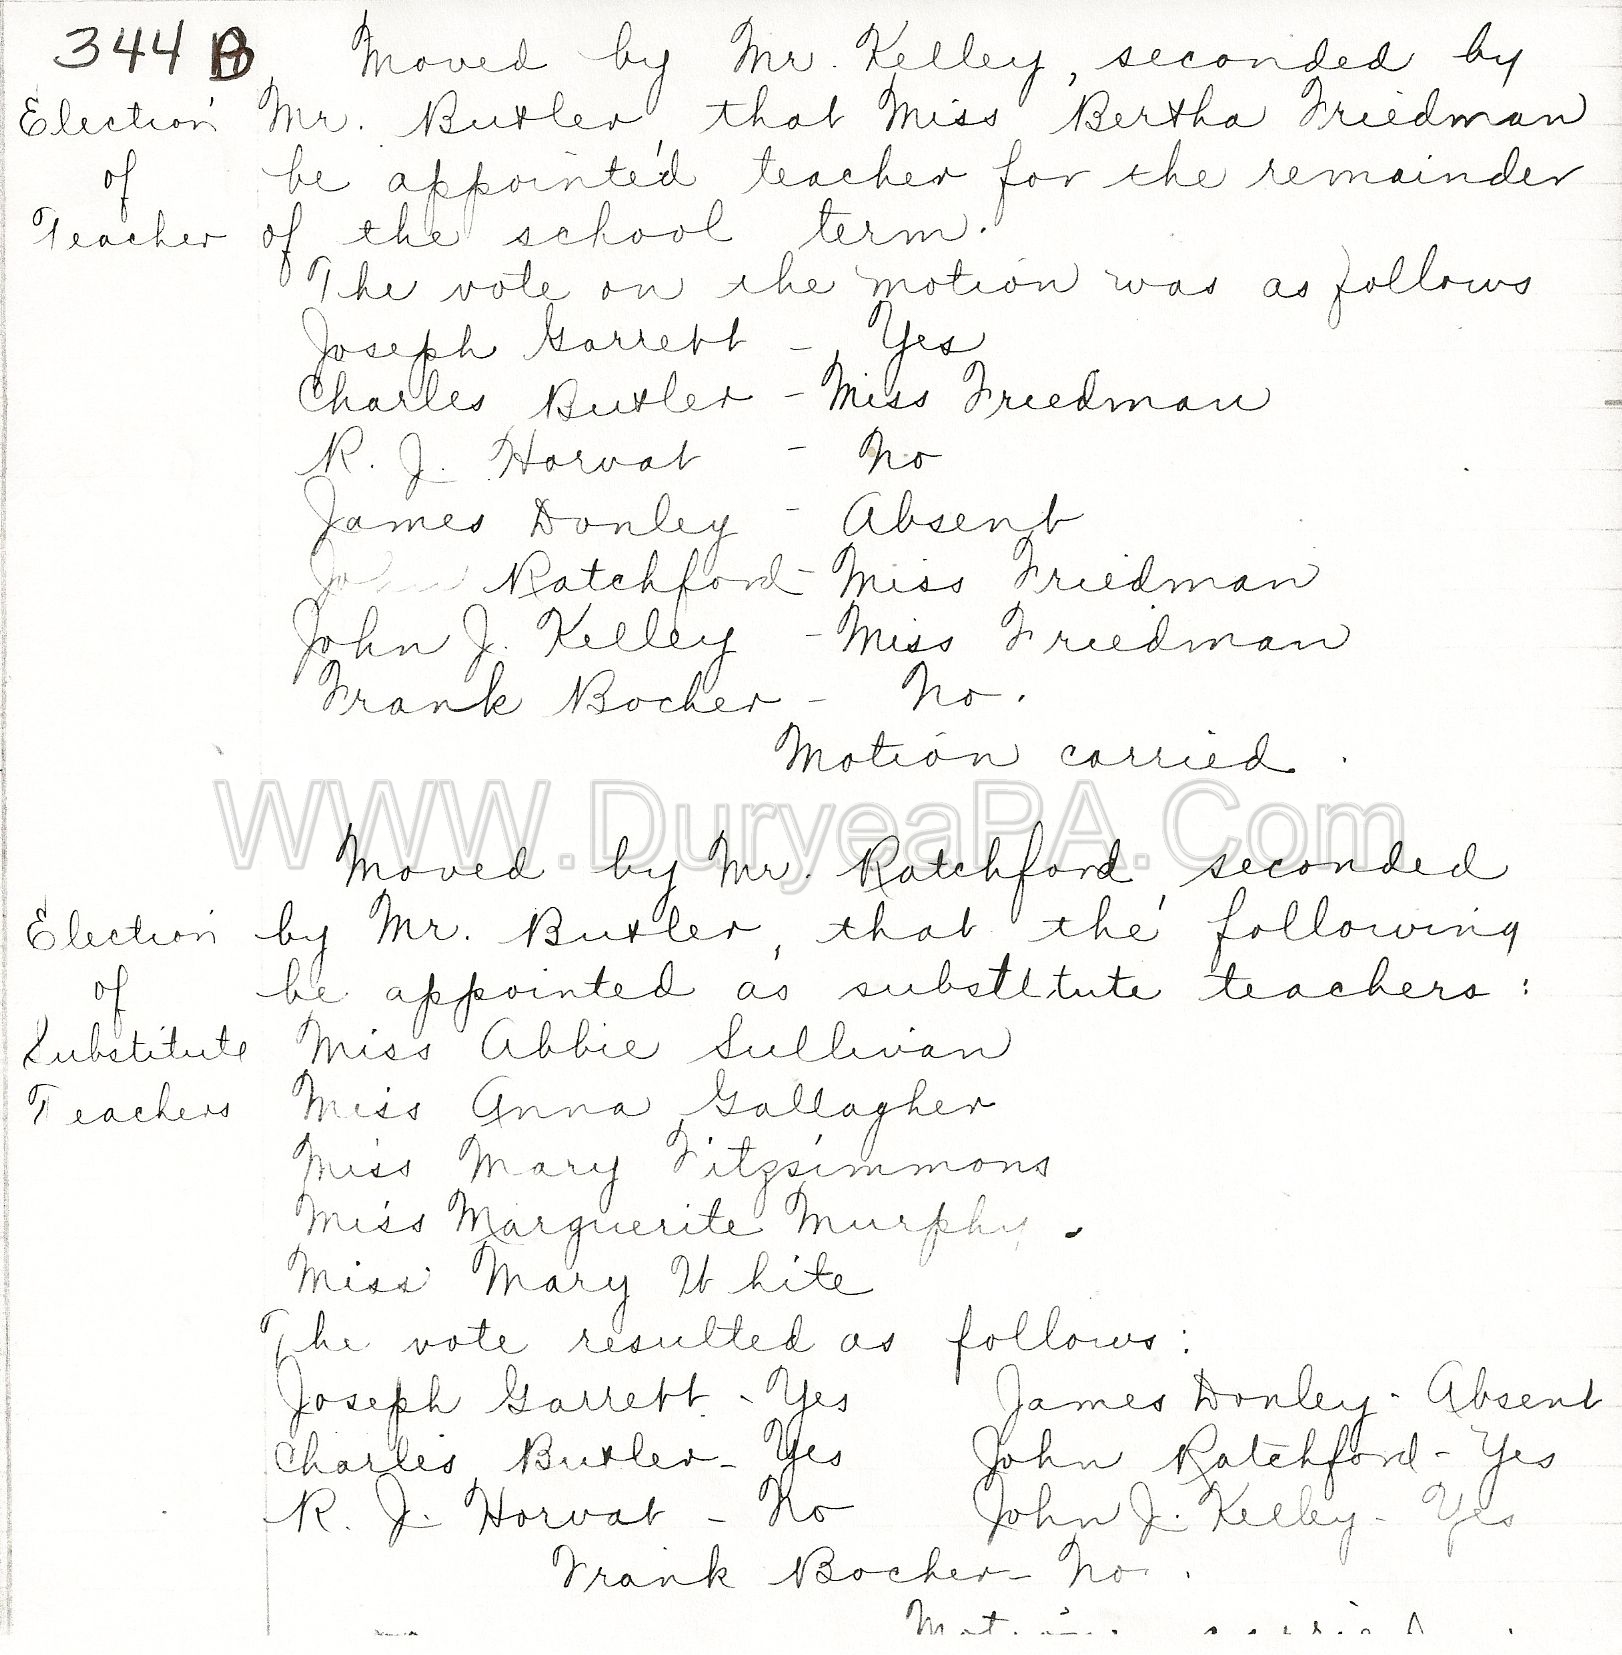 344 B
Moved by Mr. Kelley, seconded by
Election Mr. Butler, that Miss Bertha Friedman
of be appointed teacher for the remainder
Teacher of the school term.
The vote on the motion was as follows
Joseph Garrett - Yes
Charles Butler - Miss Friedman
R. J. Horvat - No
James Donley - Absent
John Ratchford - Miss Friedman
John J. Kelley - Miss Friedman
Frank Bocher - No.
Motion carried.
WWW.DuryeaPA.Com
Moved by Mr. Ratchford, seconded
Election by Mr. Butler, that the following
of be appointed as substitute teachers:
Substitute Miss Abbie Sullivan
Teachers Miss Anna Gallagher
Miss Mary Fitzsimmons
Miss Marguerite Murphy.
Miss Mary White
The vote resulted as follows:
Joseph Garrett - Yes James Donley - Absent
Charles Butler - Yes John Ratchford - Yes
R. J. Horvat - No John J. Kelley - Yes
Frank Bocher - No.
Motion carried.